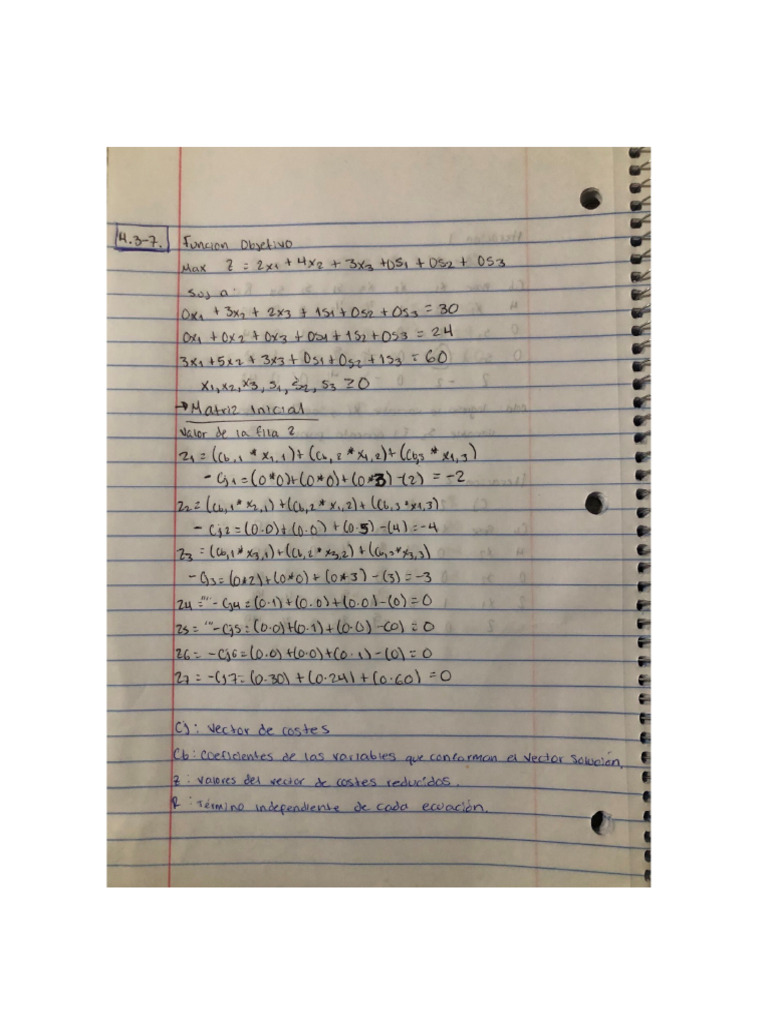 4.3-7. Funcion Objetivo
Max Z = 2x1 + 4x2 + 3x3 + 0s1 + 0s2 + 0s3
Suj a:
0x1 + 3x2 + 2x3 + 1s1 + 0s2 + 0s3 = 30
0x1 + 0x2 + 0x3 + 0s1 + 1s2 + 0s3 = 24
3x1 + 5x2 + 3x3 + 0s1 + 0s2 + 1s3 = 60
x1, x2, x3, s1, s2, s3 ≥ 0
→ Matriz Inicial
Valor de la fila Z
Z1 = (Cb,1 * x1,1) + (Cb,2 * x1,2) + (Cb,3 * x1,3)
- Cj1 = (0*0) + (0*0) + (0*3) - (2) = -2
Z2 = (Cb,1 * x2,1) + (Cb,2 * x1,2) + (Cb,3 * x1,3)
- Cj2 = (0.0) + (0.0) + (0.5) - (4) = -4
Z3 = (Cb,1 * x3,1) + (Cb,2 * x3,2) + (Cb,3 * x3,3)
- Cj3 = (0*2) + (0*0) + (0*3) - (3) = -3
Z4 = "" - Cj4 = (0.1) + (0.0) + (0.0) - (0) = 0
Z5 = "" - Cj5 = (0.0) + (0.1) + (0.0) - (0) = 0
Z6 = - Cj6 = (0.0) + (0.0) + (0.1) - (0) = 0
Z7 = - Cj7 = (0.30) + (0.24) + (0.60) = 0
Cj: Vector de costes
Cb: coeficientes de las variables que conforman el vector solución.
Z: valores del vector de costes reducidos.
R: Término independiente de cada ecuación.